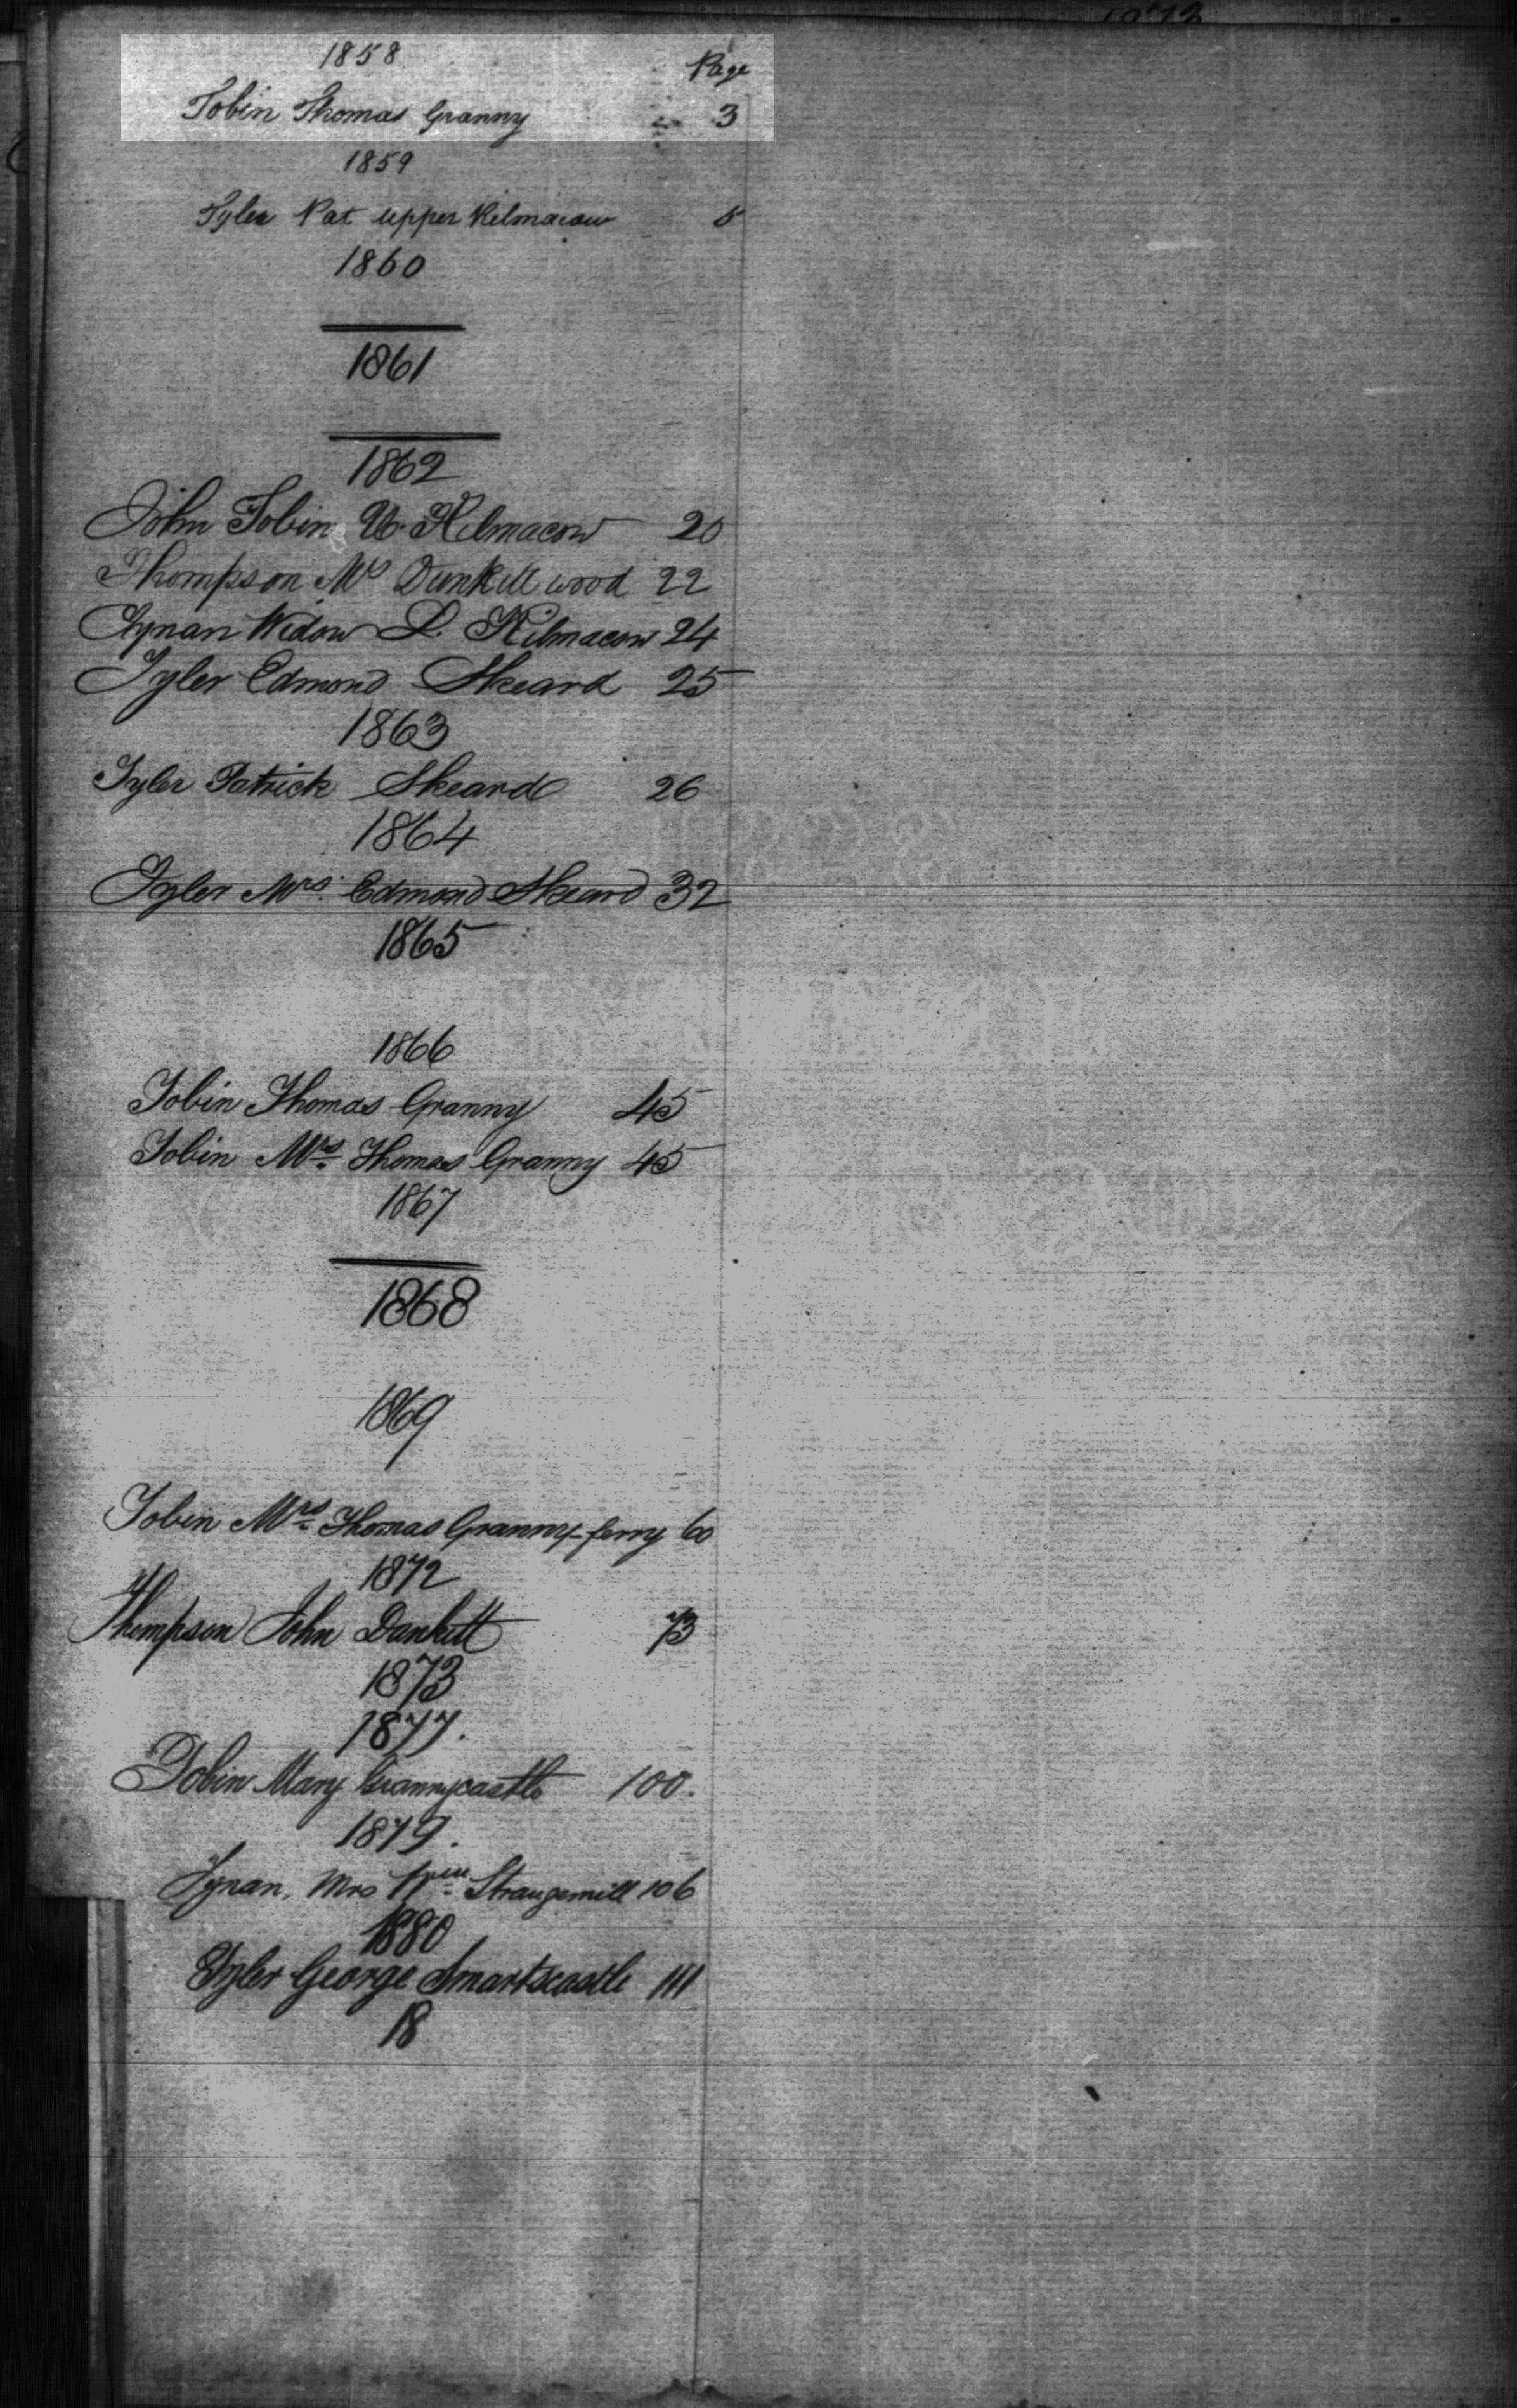 1858
Page
Tobin Thomas Granny 3
1859
Tyler Pat upper Kilmacow 5
1860
1861
1862
John Tobin U. Kilmacow 20
Thompson Mrs Dunkitt wood 22
Tynan Widow L. Kilmacow 24
Tyler Edmond Skeard 25
1863
Tyler Patrick Skeard 26
1864
Tyler Mrs. Edmond Skeard 32
1865
1866
Tobin Thomas Granny 45
Tobin Mrs. Thomas Granny 45
1867
1868
1869
Tobin Mrs Thomas Granny-ferry 60
1872
Thompson John Dunkitt 73
1873
1877.
Tobin Mary Grannycastle 100.
1879.
Tynan, Mrs Wm Strangsmill 106
1880
Tyler George Smartscastle 111
18